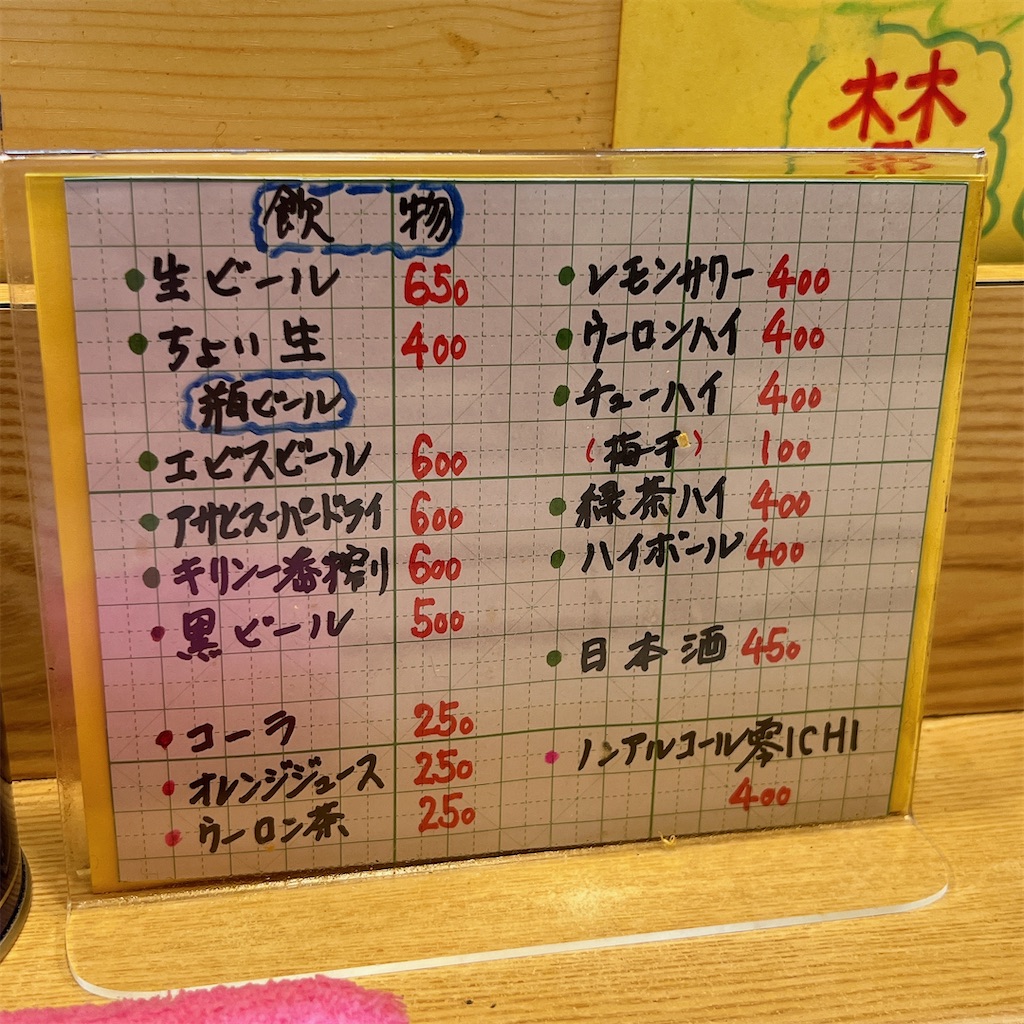 飲 物
生ビール 650
ちょい生 400
瓶ビール
エビスビール 600
アサヒスーパードライ 600
キリン一番搾り 600
黒ビール 500
コーラ 250
オレンジジュース 250
ウーロン茶 250
レモンサワー 400
ウーロンハイ 400
チューハイ 400
(梅干) 100
緑茶ハイ 400
ハイボール 400
日本酒 450
ノンアルコール零ICHI
400